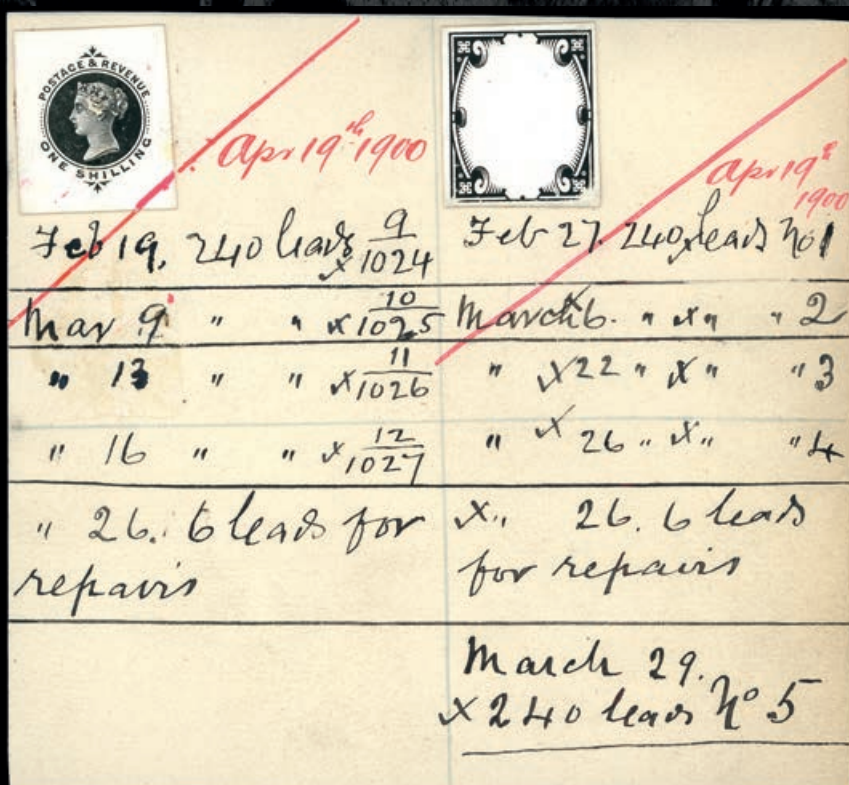 POSTAGE & REVENUE
ONE SHILLING
Apr 19th 1900
Feb 19. 240 leads x 9/1024
Mar 9 " " x 10/1025
" 13 " " x 11/1026
" 16 " " x 12/1027
" 26. 6 leads for
repairs
Apr 19th
1900
Feb 27. 240 x leads No 1
March x 6. " x " " 2
" x 22 " x " " 3
" x 26 " x " " 4
x " 26. 6 leads
for repairs
March 29.
x 240 leads No 5